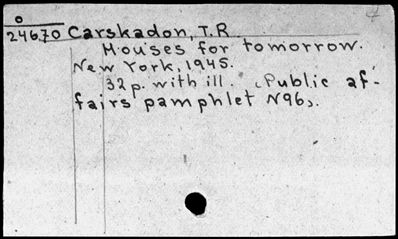 0
24670 Carskadon, T.R.
Houses for tomorrow.
New York, 1945.
32 p. with ill. (Public af-
fairs pamphlet N96).